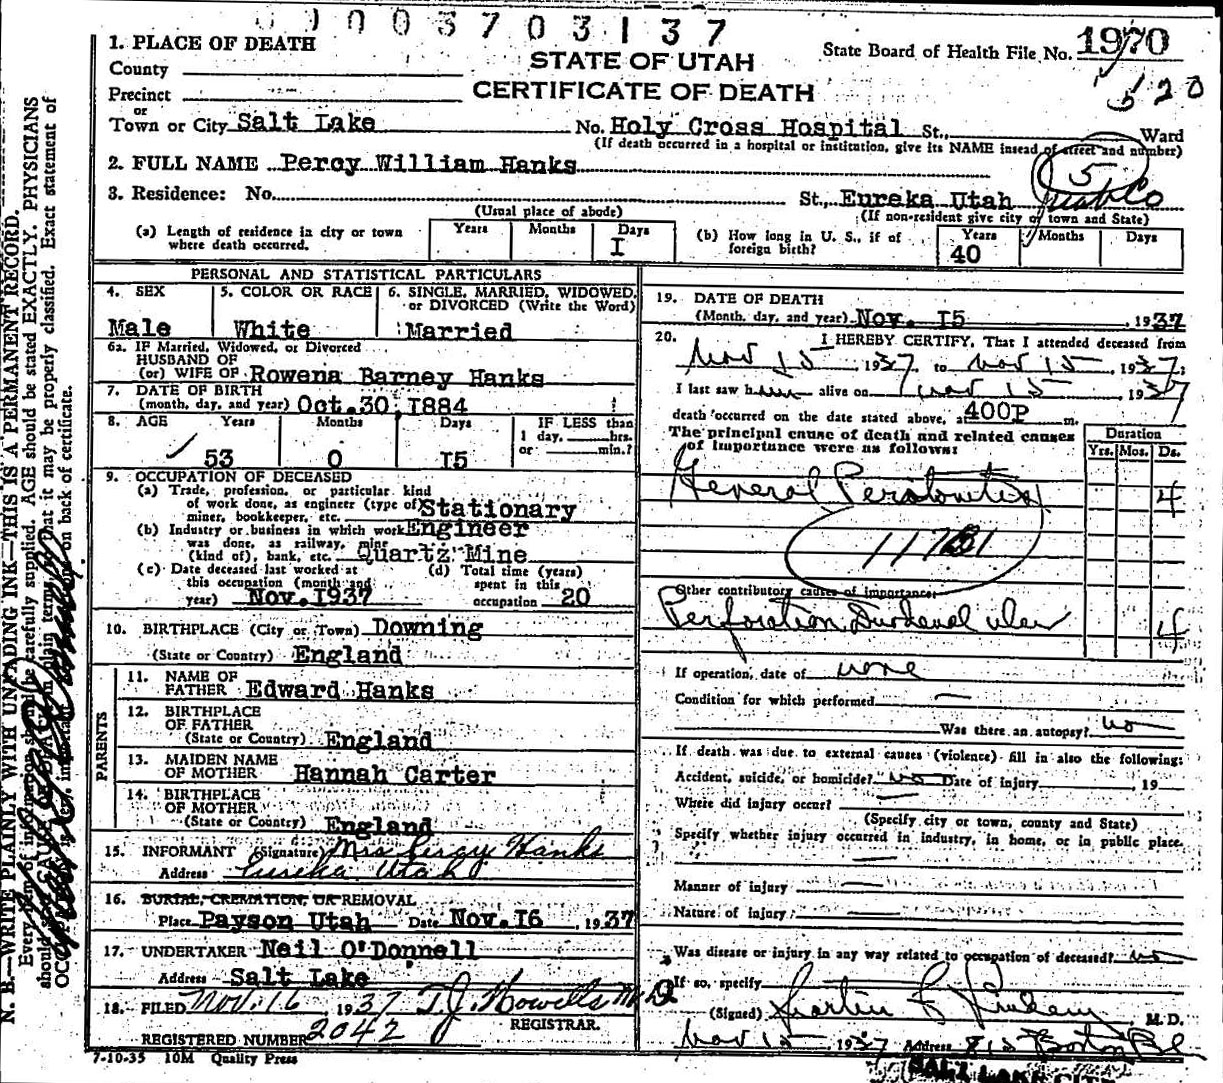 0003703137
1. PLACE OF DEATH
STATE OF UTAH
CERTIFICATE OF DEATH
State Board of Health File No. 1970
520
County
Precinct
or
Town or City Salt Lake No. Holy Cross Hospital St., Ward
(If death occurred in a hospital or institution, give its NAME insead of street and number)
2. FULL NAME Percy William Hanks
5
3. Residence: No. St., Eureka Utah Juab Co
(Usual place of abode) (If non-resident give city or town and State)
(a) Length of residence in city or town where death occurred. Years Months Days I
(b) How long in U. S., if of foreign birth? Years 40 Months Days
PERSONAL AND STATISTICAL PARTICULARS
4. SEX Male
5. COLOR OR RACE White
6. SINGLE, MARRIED, WIDOWED, or DIVORCED (Write the Word) Married
6a. IF Married, Widowed, or Divorced
HUSBAND OF
(or) WIFE OF Rowena Barney Hanks
7. DATE OF BIRTH
(month, day, and year) Oct.30,1884
8. AGE Years 53 Months 0 Days I5 IF LESS than 1 day, hrs. or min.?
9. OCCUPATION OF DECEASED
(a) Trade, profession, or particular kind
of work done, as engineer (type of) Stationary
miner, bookkeeper, etc.
(b) Industry or business in which work Engineer
was done, as railway, mine
(kind of), bank, etc. Quartz Mine
(c) Date deceased last worked at this occupation (month and year) Nov.I937
(d) Total time (years) spent in this occupation 20
10. BIRTHPLACE (City or Town) Downing
(State or Country) England
PARENTS
11. NAME OF
FATHER Edward Hanks
12. BIRTHPLACE
OF FATHER
(State or Country) England
13. MAIDEN NAME
OF MOTHER Hannah Carter
14. BIRTHPLACE
OF MOTHER
(State or Country) England
15. INFORMANT (Signature) Mrs Percy Hanks
Address Eureka Utah
16. BURIAL, CREMATION, OR REMOVAL
Place Payson Utah Date Nov.I6 , 1937
17. UNDERTAKER Neil O'Donnell
Address Salt Lake
18. FILED Nov. 16 1937 T.J. Howells, M.D.
REGISTRAR.
REGISTERED NUMBER 2042
7-10-35 10M Quality Press
19. DATE OF DEATH
(Month, day, and year) Nov. I5 , 1937
20. I HEREBY CERTIFY, That I attended deceased from
Nov 15 , 1937, to Nov 15 , 1937;
I last saw him alive on Nov 15 , 1937
death occurred on the date stated above, at 400P m.
The principal cause of death and related causes
of importance were as follows:
Duration
Yrs. Mos. Ds.
General Peritonitis 4
117B1
Other contributory causes of importance:
Perforation Duodenal ulcer 4
If operation, date of none
Condition for which performed
Was there an autopsy? no
If death was due to external causes (violence) fill in also the following:
Accident, suicide, or homicide? no Date of injury , 19
Where did injury occur?
(Specify city or town, county and State)
Specify whether injury occurred in industry, in home, or in public place.
Manner of injury
Nature of injury
Was disease or injury in any way related to occupation of deceased? no
If so, specify
(Signed) M. D.
Nov 15 1937 Address 818 Boston Bl
SALT LAKE CITY
N. B.—WRITE PLAINLY WITH UNFADING INK—THIS IS A PERMANENT RECORD.
Every item of information should be carefully supplied. AGE should be stated EXACTLY. PHYSICIANS
should state CAUSE OF DEATH in plain terms, that it may be properly classified. Exact statement of
OCCUPATION is very important. on back of certificate.